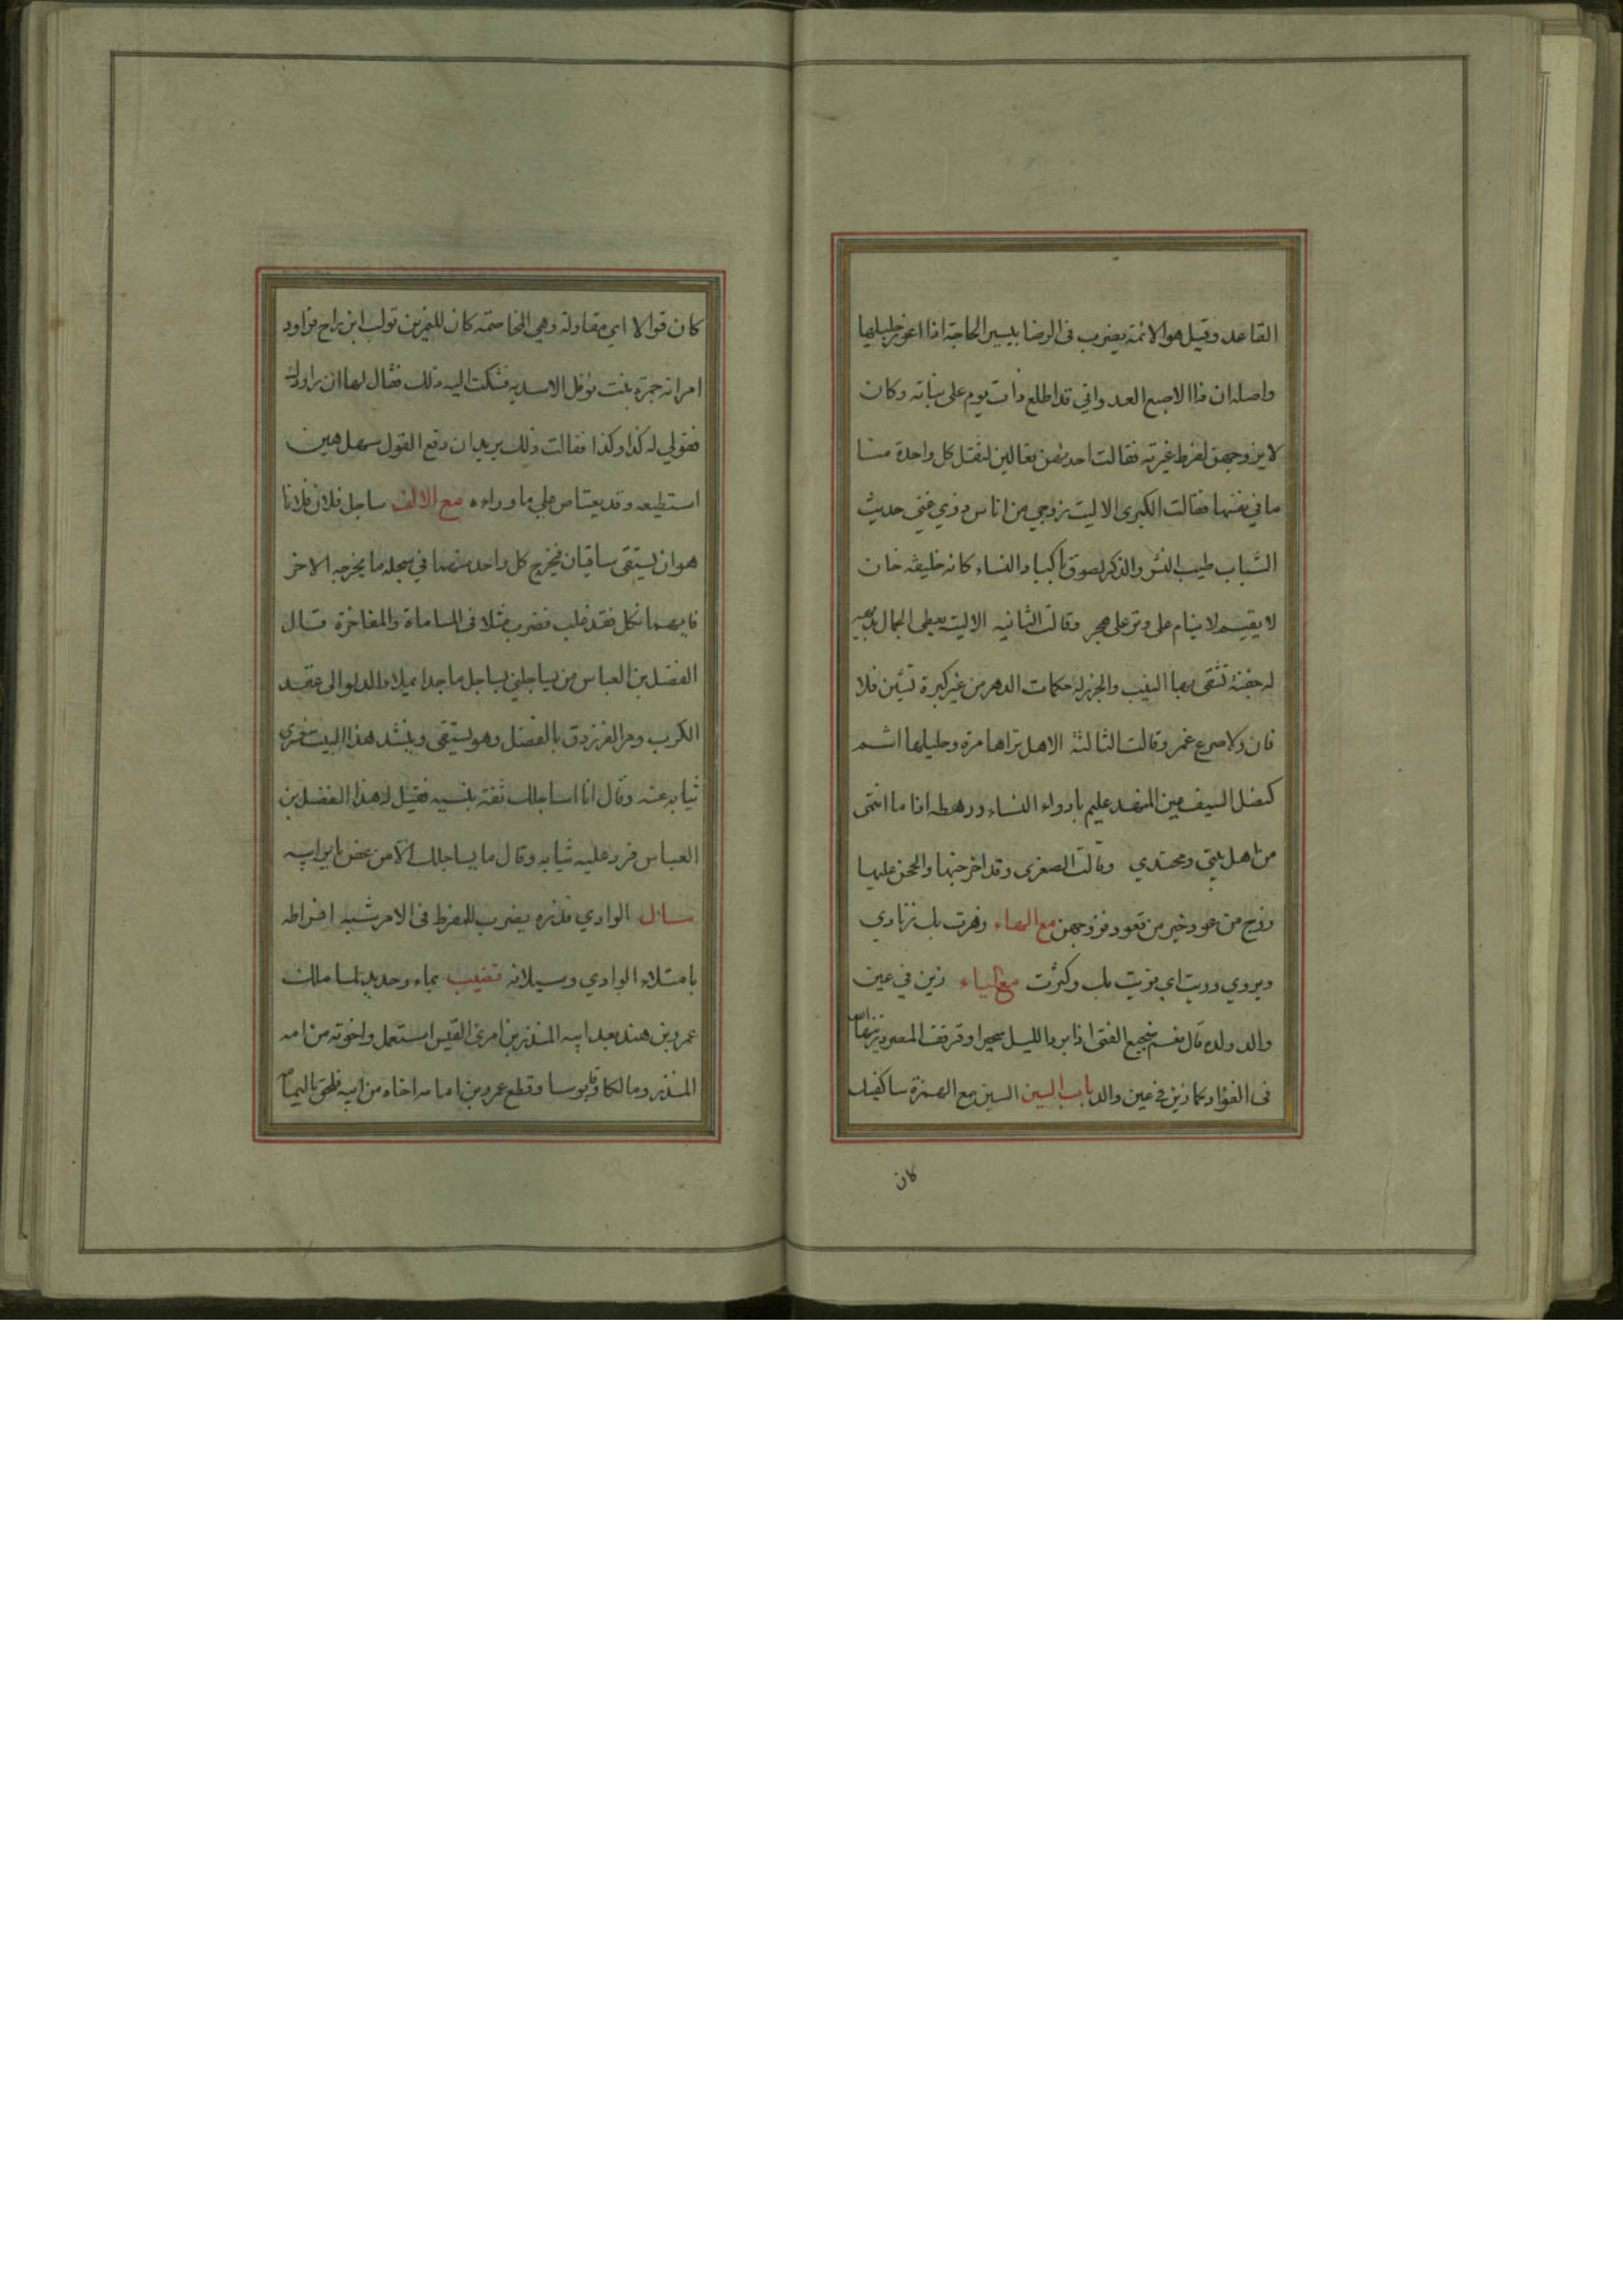 القاعد وقيل هو الائمة يضرب فى الرضا بيسير الحاجة اذا اعوز جليلها
واصله ان ذا الاصبع العدواني قد اطلع ذات يوم على بناته وكان
لا يزوجهن لفرط غيرته فقالت احديهن تعالين لتقل كل واحدة منا
ما في نفسها فقالت الكبرى الا ليت زوجي من اناس ذوي غنى حديث
الشباب طيب النشر والذكر لصوق باكباد النساء كانه خليفة جان
لا يقيم لا ينام على وتر على هجر وقالت الثانيه الا ليته يعطى الجمال
له جفنة تشقى بها النيب والجزر له حكمات الدهر من غير كبرة تشين فلا
فان ولا ضرع غمر وقالت الثالثة الا هل تراها مرة وحليلها اشم
كنصل السيف عين المهند عليم بادواء النساء ورهطه اذا ما انتمى
من اهل بيتي ومحتدي وقالت الصغرى وقد احرجنها والححن عليها
زوج من عود خير من قعود فزوجهن مع الهاء زهرت بك زنادي
ويروى وريت اي قويت بك وكثرت مع الياء زين في عين
والد ولده قال نعم ضجيع الفتى اذا برد الليل سحيرا وقرقف المصرد زينها الله
فى الفؤاد كما زين في عين والد باب السين السين مع الهمزة ساكفيك
كان
كان قوالا اي مقاولة وهي المخاصمة كان للنمر بن تولب ابن اخ يراود
امراته جمرة بنت نوفل الاسديه فشكت اليه ذلك فقال لها ان راودك
فقولي له كذا وكذا فقالت ذلك يريد ان دفع القول سهل هين
استطيعه وقد يعتاص علي ما وراءه مع الالف ساجل فلان فلانا
هو ان يستقى ساقيان فيخرج كل واحد منهما في سجله ما يخرجه الاخر
فايهما نكل فقد غلب فضرب مثلا فى المساماة والمفاخرة قال
الفضل بن العباس من يساجلني يساجل ماجدا يملأ الدلو الى عقد
الكرب ومر الفرزدق بالفضل وهو يستقى وينشد هذا البيت فسرى
ثيابه عنه وقال انا اساجلك ثقة بنسبه فقيل له هذا الفضل بن
العباس فرد عليه ثيابه وقال ما يساجلك الا من عض باير ابيه
سال الوادي فذره يضرب للمفرط فى الامر شبه افراطه
بامتلاء الوادي وسيلانه قضيب بماء وحديد لما ملك
عمرو بن هند بعد ابيه المنذر بن امرئ القيس استعمل واخوته من امه
المنذر ومالكا وقابوسا وقطع عمرو بن امامه اخاه من ابيه فلحق باليمامة